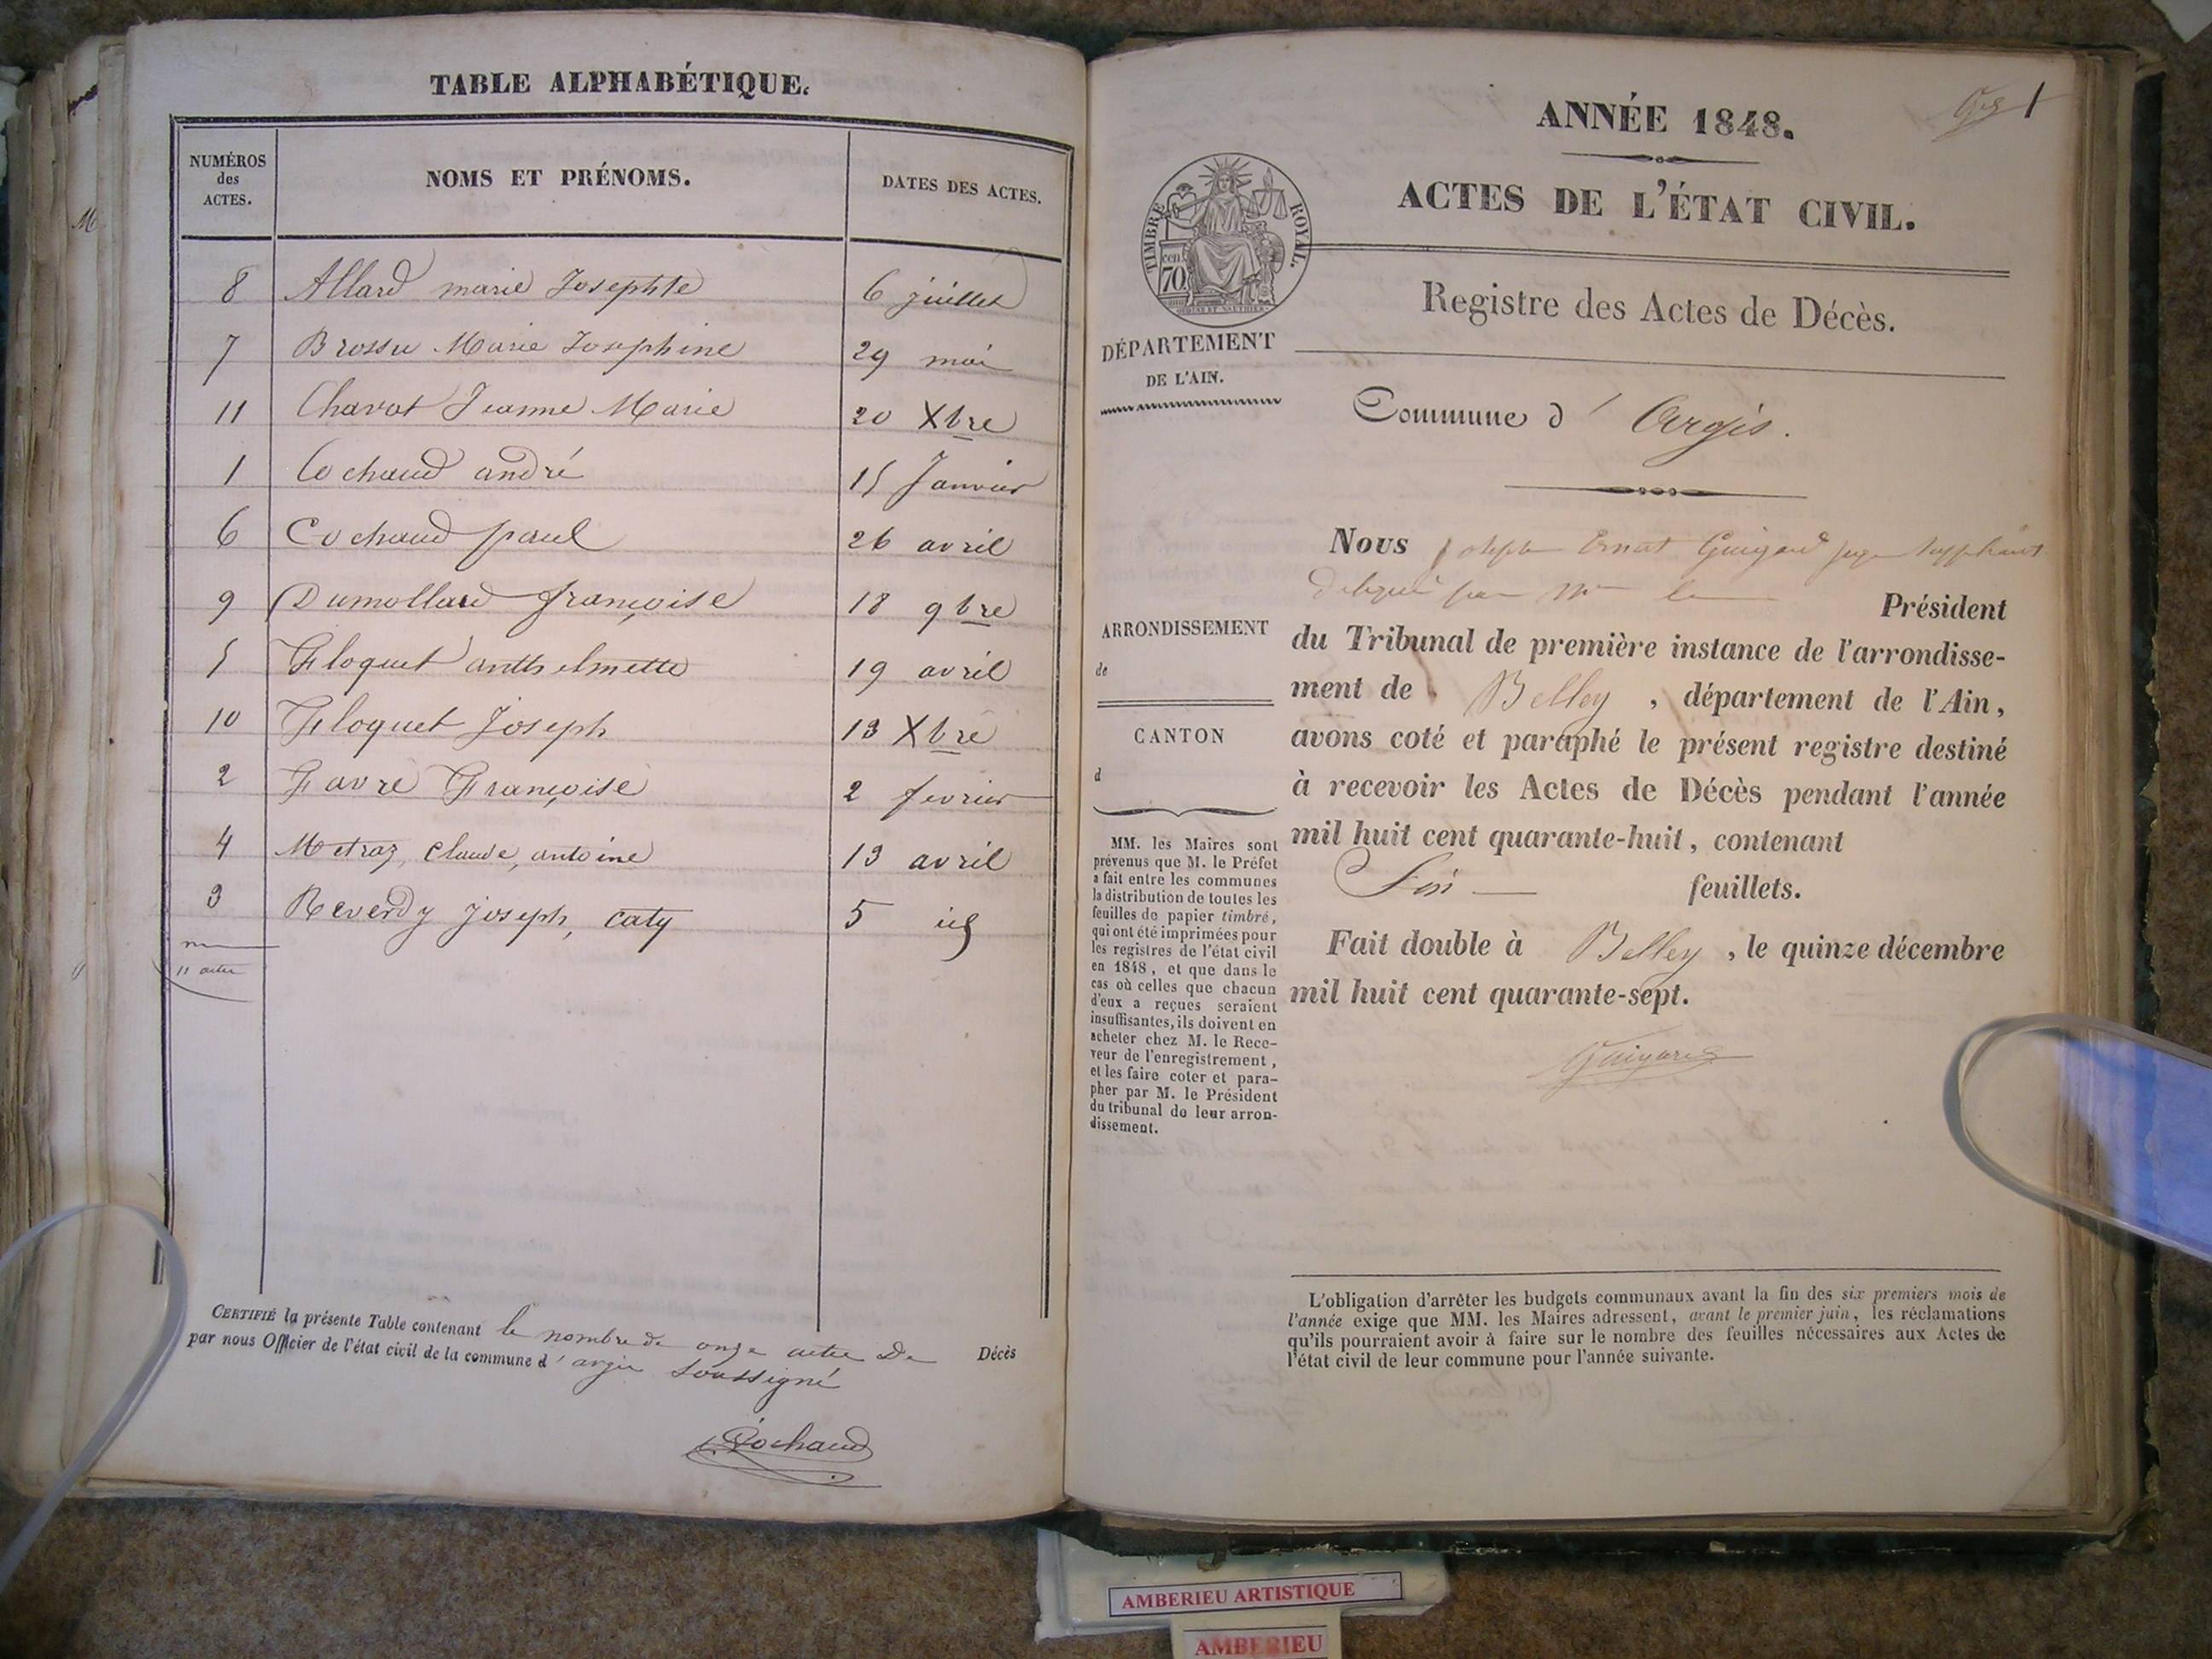 TABLE ALPHABÉTIQUE.
NUMÉROS des ACTES. NOMS ET PRÉNOMS. DATES DES ACTES.
8 Allard marie Josephte 6 juillet
7 Brossu Marie Josephine 29 mai
11 Chavat Jeanne Marie 20 Xbre
1 Cochaud andré 15 Janvier
6 Cochaud paul 26 avril
9 Dumollard françoise 18 9bre
5 Floquet anthelmette 19 avril
10 Floquet Joseph 13 Xbre
2 Favre Françoise 2 fevrier
4 Metraz, Claude, antoine 13 avril
3 Reverdy joseph, caty 5
11 actes
CERTIFIÉ la présente Table contenant le nombre de onze actes De Décès
par nous Officier de l'état civil de la commune d'argis soussigné
Cochaud
1
ANNÉE 1848.
ACTES DE L'ÉTAT CIVIL.
TIMBRE ROYAL.
cen 70
Registre des Actes de Décès.
DÉPARTEMENT
DE L'AIN.
Commune d'Argis.
Nous joseph Ernest Guigard juge suppléant
délégué par Mr le Président
du Tribunal de première instance de l'arrondisse-
ment de Belley, département de l'Ain,
avons coté et paraphé le présent registre destiné
à recevoir les Actes de Décès pendant l'année
mil huit cent quarante-huit, contenant
Six feuillets.
Fait double à Belley, le quinze décembre
mil huit cent quarante-sept.
Guigard
ARRONDISSEMENT
de
CANTON
d
MM. les Maires sont
prévenus que M. le Préfet
a fait entre les communes
la distribution de toutes les
feuilles de papier timbré,
qui ont été imprimées pour
les registres de l'état civil
en 1848, et que dans le
cas où celles que chacun
d'eux a reçues seraient
insuffisantes, ils doivent en
acheter chez M. le Rece-
veur de l'enregistrement,
et les faire coter et para-
pher par M. le Président
du tribunal de leur arron-
dissement.
L'obligation d'arrêter les budgets communaux avant la fin des six premiers mois de
l'année exige que MM. les Maires adressent, avant le premier juin, les réclamations
qu'ils pourraient avoir à faire sur le nombre des feuilles nécessaires aux Actes de
l'état civil de leur commune pour l'année suivante.
AMBERIEU ARTISTIQUE
AMBERIEU